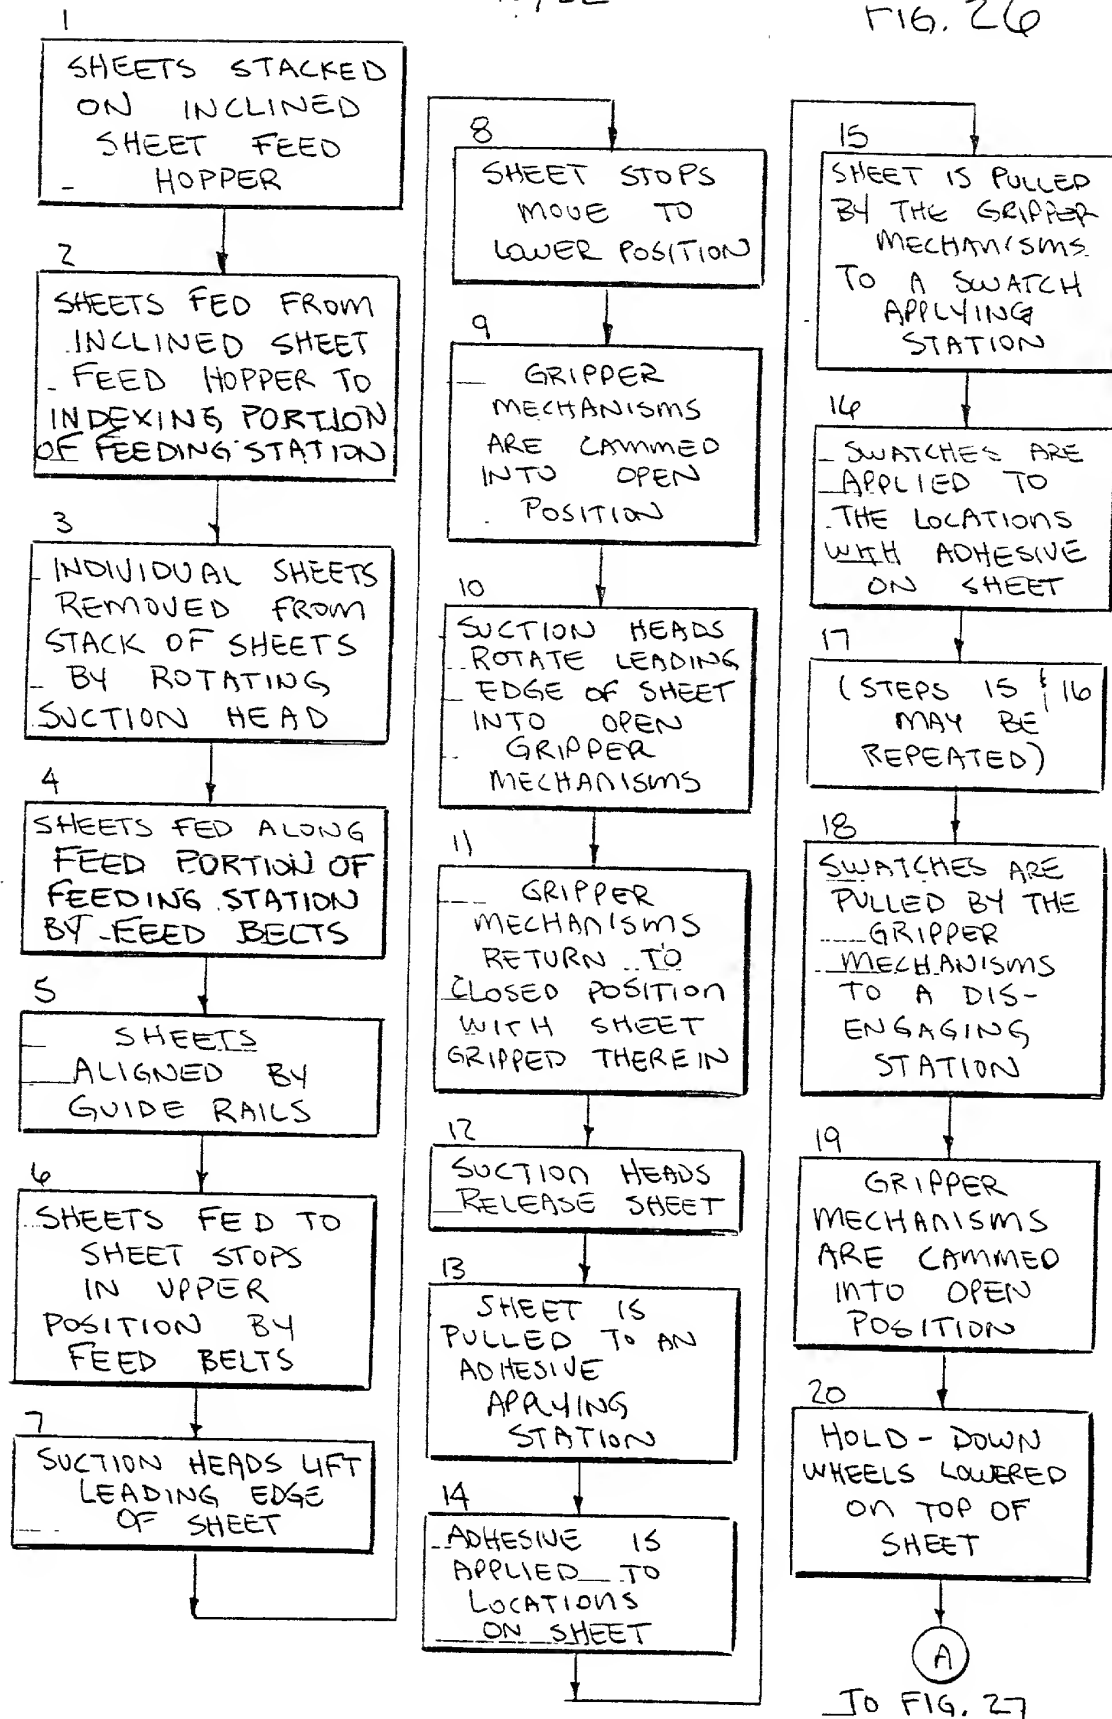 FIG. 26
1
SHEETS STACKED
ON INCLINED
SHEET FEED
HOPPER
2
SHEETS FED FROM
INCLINED SHEET
FEED HOPPER TO
INDEXING PORTION
OF FEEDING STATION
3
INDIVIDUAL SHEETS
REMOVED FROM
STACK OF SHEETS
BY ROTATING
SUCTION HEAD
4
SHEETS FED ALONG
FEED PORTION OF
FEEDING STATION
BY FEED BELTS
5
SHEETS
ALIGNED BY
GUIDE RAILS
6
SHEETS FED TO
SHEET STOPS
IN UPPER
POSITION BY
FEED BELTS
7
SUCTION HEADS LIFT
LEADING EDGE
OF SHEET
8
SHEET STOPS
MOVE TO
LOWER POSITION
9
GRIPPER
MECHANISMS
ARE CAMMED
INTO OPEN
POSITION
10
SUCTION HEADS
ROTATE LEADING
EDGE OF SHEET
INTO OPEN
GRIPPER
MECHANISMS
11
GRIPPER
MECHANISMS
RETURN TO
CLOSED POSITION
WITH SHEET
GRIPPED THEREIN
12
SUCTION HEADS
RELEASE SHEET
13
SHEET IS
PULLED TO AN
ADHESIVE
APPLYING
STATION
14
ADHESIVE IS
APPLIED TO
LOCATIONS
ON SHEET
15
SHEET IS PULLED
BY THE GRIPPER
MECHANISMS
TO A SWATCH
APPLYING
STATION
16
SWATCHES ARE
APPLIED TO
THE LOCATIONS
WITH ADHESIVE
ON SHEET
17
(STEPS 15 & 16
MAY BE
REPEATED)
18
SWATCHES ARE
PULLED BY THE
GRIPPER
MECHANISMS
TO A DIS-
ENGAGING
STATION
19
GRIPPER
MECHANISMS
ARE CAMMED
INTO OPEN
POSITION
20
HOLD-DOWN
WHEELS LOWERED
ON TOP OF
SHEET
A
TO FIG. 27